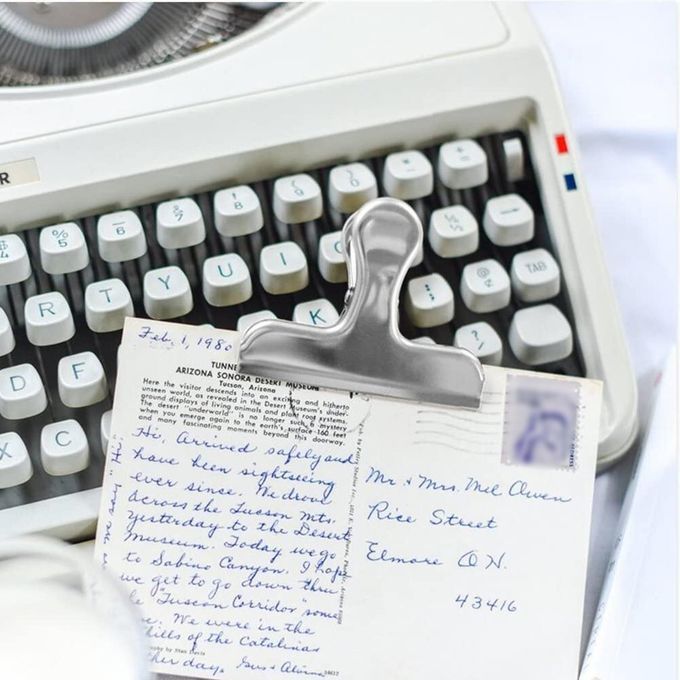 R
$ 4
% 5
— 6
& 7
' 8
( 9
) 0
*
+
R T Y U I
¼ ½
D F
K
:
@ ¢
TAB
X C
?
Feb. 1, 1980
TUNNE
ARIZONA SONORA DESERT MUSEUM
Tucson, Arizona
Here the visitor descends into an exciting and hitherto
unseen world, as revealed in the Desert Museum's under-
ground displays of living animals and plant root systems.
The desert "underworld" is no longer such a mystery
when you emerge again to the earth's surface 160 feet
and many fascinating moments beyond this doorway.
Hi, Arrived safely and
have been sightseeing
ever since. We drove
across the Tucson Mts.
yesterday to the Desert
Museum. Today we go
to Sabino Canyon. I hope
we get to go down thru
"Tuscon Corridor" some
We were in the
hills of the Catalinas
ther day. Gus & Alvina
by Stan Davis
Mr. & Mrs. Mel Owen
Rice Street
Elmore OH.
43416